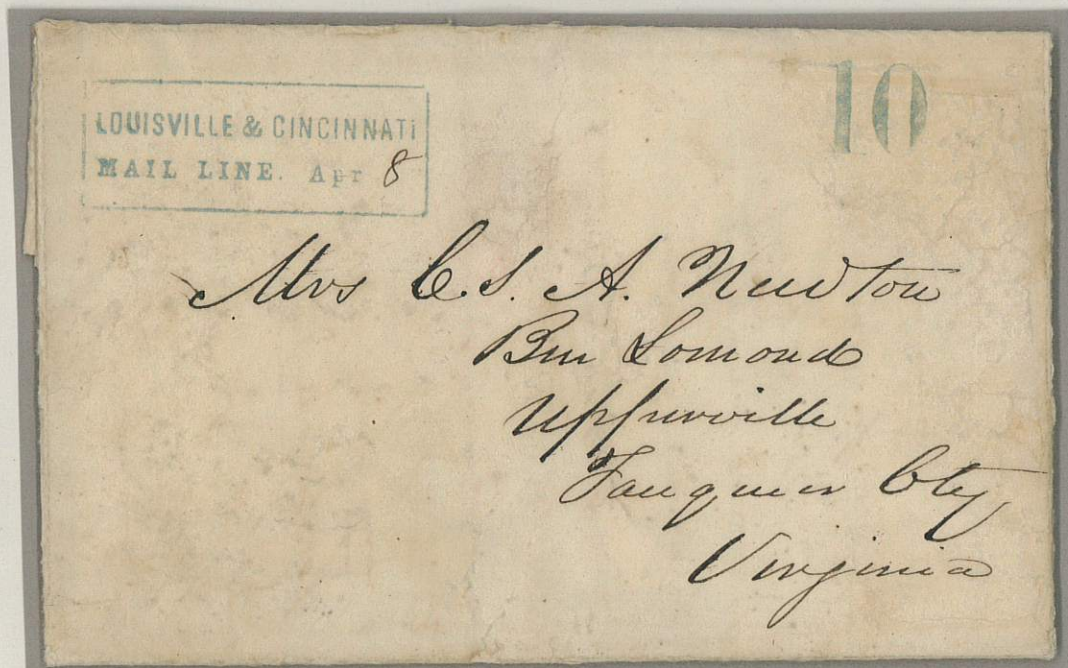 LOUISVILLE & CINCINNATI
MAIL LINE. Apr 8
10
Mrs C. S. A. Newton
Ben Lomond
Upperville
Fauquier Cty
Virginia